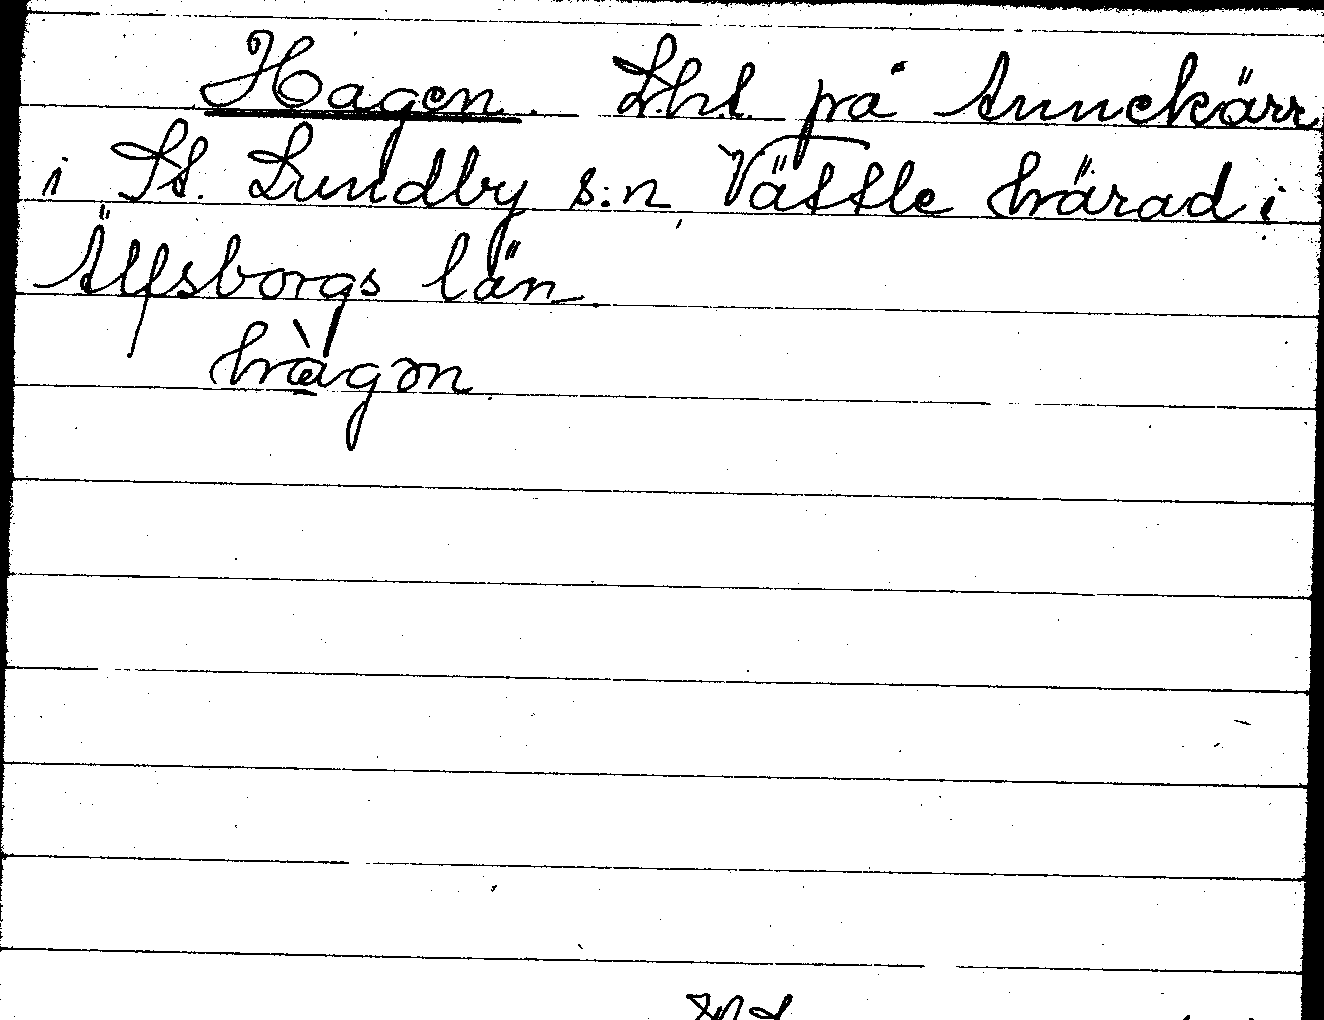 Hagen. Lht. på Annekärr
i St. Lundby s:n, Vättle härad i
Älfsborgs län.
hàgən